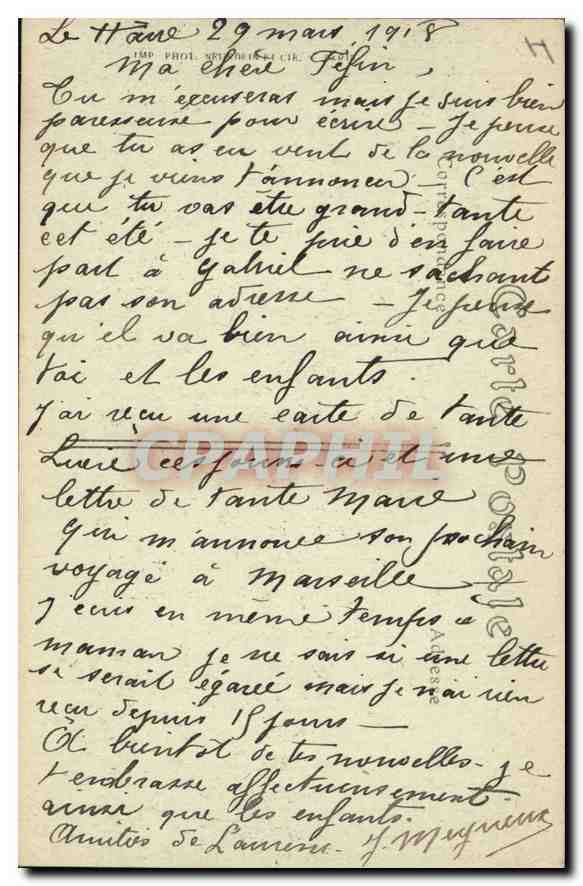 Le Havre 29 mars 1918
4
IMP. PHOT. NEURDEIN ET CIE.
Ma chère Féfin,
Tu m'excuseras mais je suis bien
paresseuse pour écrire - Je pense
que tu as eu vent de la nouvelle
que je viens t'annoncer - C'est
que tu vas être grand-tante
cet été - je te prie d'en faire
part à Gabriel ne sachant
pas son adresse - Je pense
qu'il va bien ainsi que
toi et les enfants.
J'ai reçu une carte de tante
Lucie ces jours-ci et une
lettre de tante Marie
qui m'annonce son prochain
voyage à Marseille
J'écris en même temps a
maman je ne sais si une lettre
se serait égarée mais je n'ai rien
reçu depuis 15 jours -
A bientôt de tes nouvelles - je
t'embrasse affectueusement
ainsi que les enfants.
Amitiés de Laurens - J.
Carte Postale
Correspondance
Adresse
CPAPHIL